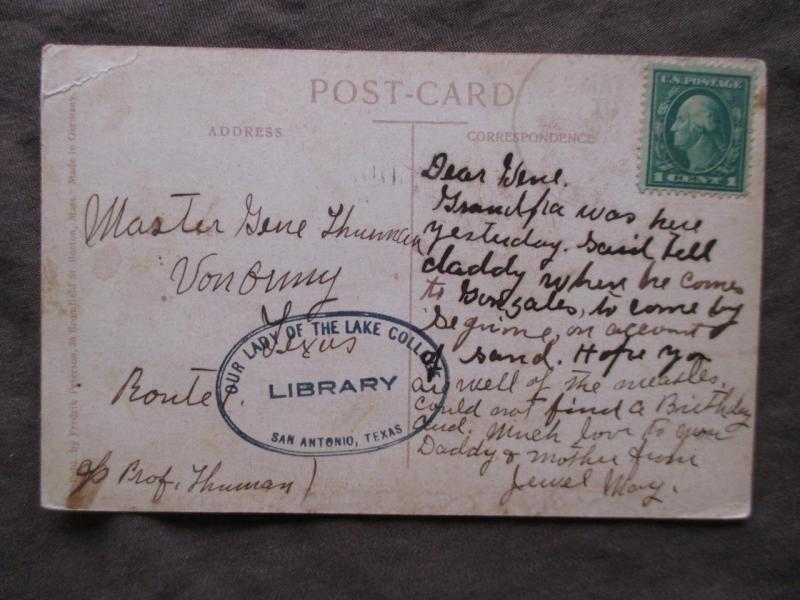 POST-CARD
ADDRESS
CORRESPONDENCE
U.S. POSTAGE
1 CENT 1
Master Gene Thurman
Von Ormy
Texas
Route.
c/o Prof. Thurman)
OUR LADY OF THE LAKE COLLEGE
LIBRARY
SAN ANTONIO, TEXAS
Dear Gene.
Grandpa was here
yesterday. Said tell
daddy when he comes
to Gonzales, to come by
Seguine, on account
of sand. Hope you
are well of the measles.
Could not find a Birthday
Card. Much love to you
Daddy & mother from
Jewel May.
by Fredrik Peterson, Bromfield St. Boston, Mass. Made in Germany